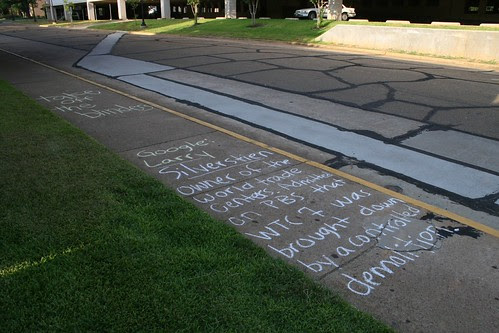 take
off
the
blinders
Google:
Larry
Silverstien
owner of the
world trade
centers, admitted
on PBS that
WTC 7 was
brought down
by a controlled
demolition.